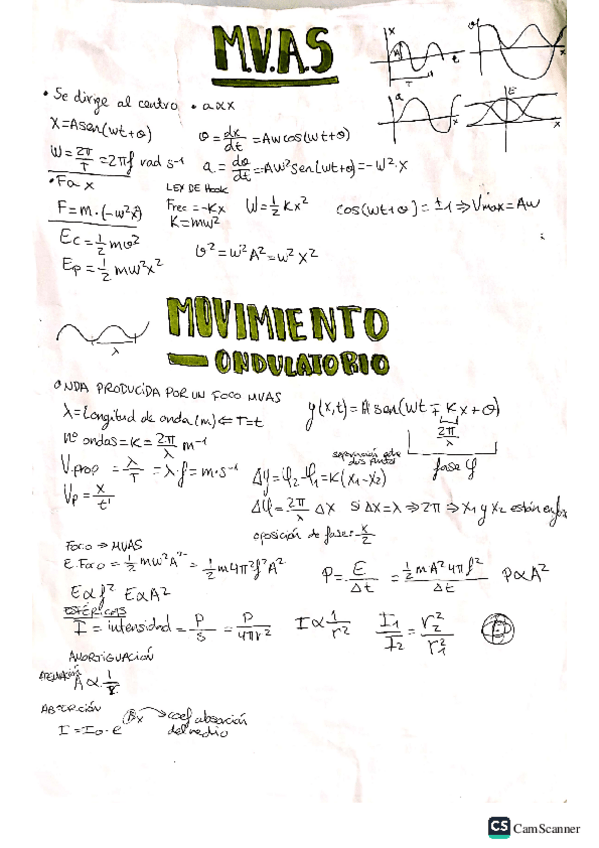 M.V.A.S
• Se dirige al centro • a∝x
X=Asen(wt+θ)
v=dx/dt=Awcos(wt+θ)
W=2π/T=2πf rad s⁻¹
a=dv/dt=-Aw²sen(wt+θ)=-w²·x
• F∝x
LEY DE Hook
F=m·(-w²x)
Frec=-Kx
K=mw²
W=1/2Kx²
cos(wt+θ)=±1⇒Vmax=Aw
Ec=1/2mv²
Ep=1/2mw²x²
v²=w²A²=w²x²
MOVIMIENTO
ONDULATORIO
λ
ONDA PRODUCIDA POR UN FOCO MVAS
λ=Longitud de onda (m)⇐T=t
y(x,t)=A sen(wt∓Kx+θ)
2π/λ
fase φ
nº ondas=K=2π/λ m⁻¹
V.prop=λ/T=λ·f=m·s⁻¹
separación entre dos puntos
Δφ=φ2-φ1=K(x1-x2)
Vp=x/t'
Δφ=2π/λ Δx Si Δx=λ⇒2π⇒x1 y x2 están en fase
oposición de fase:
FOCO⇒MVAS
E.Foco=1/2mw²A²=1/2m4π²f²A²
P=E/Δt=1/2mA²4πf²/Δt P∝A²
E∝f² E∝A²
ESFÉRICAS
I=intensidad=P/S=P/4πr² I∝1/r² I1/I2=r2²/r1²
AMORTIGUACIÓN
ATENUACIÓN
A∝1/r
ABSORCIÓN
I=I0·e βx → coef absorción
del medio
CS CamScanner